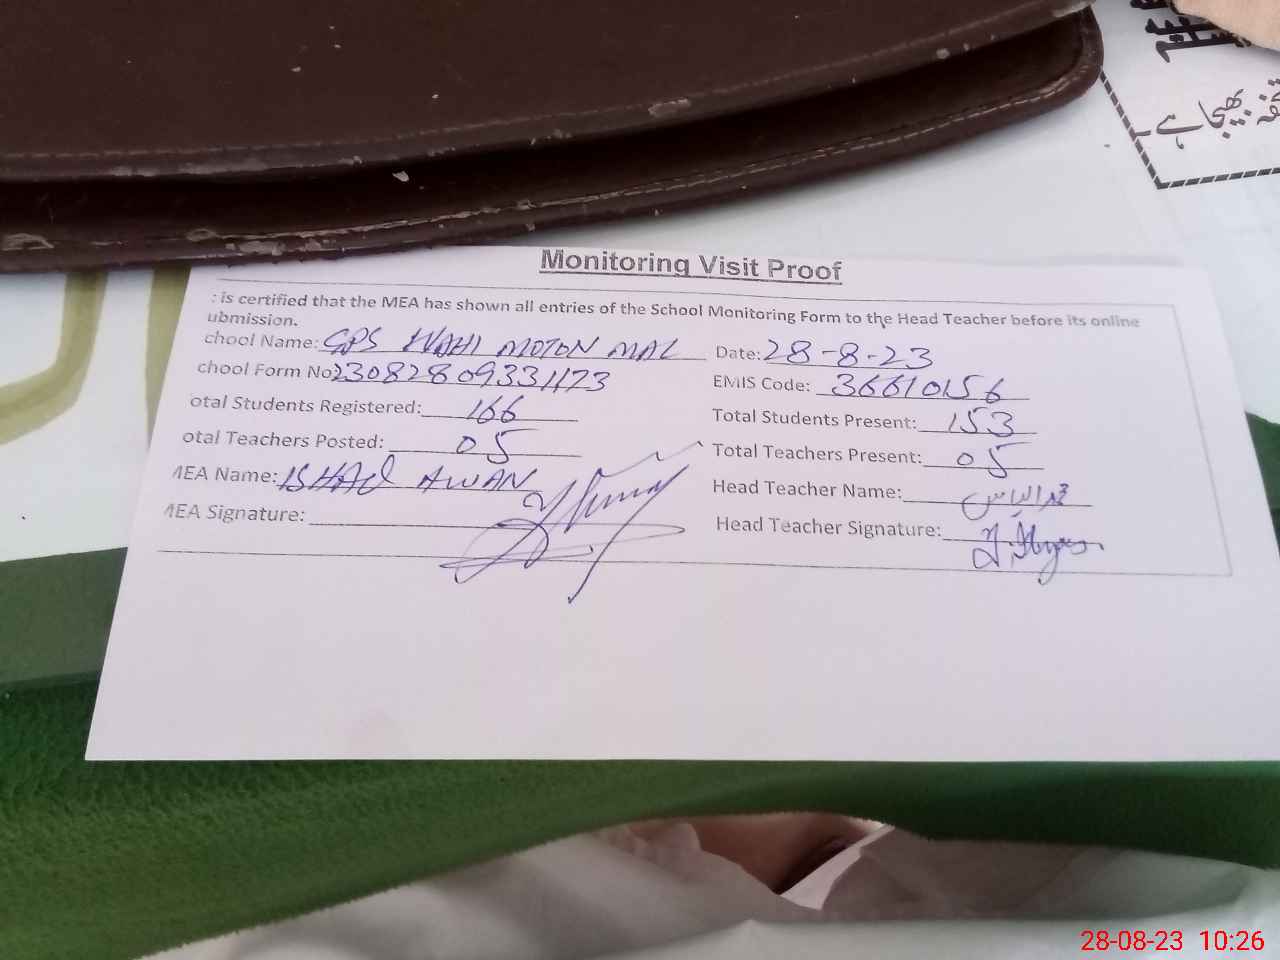 بھیجا ہے
Monitoring Visit Proof
: is certified that the MEA has shown all entries of the School Monitoring Form to the Head Teacher before its online
ubmission.
chool Name: GPS WAHI MOTON MAL Date: 28-8-23
chool Form No 23082809331173 EMIS Code: 36610156
otal Students Registered: 166 Total Students Present: 153
otal Teachers Posted: 05 Total Teachers Present: 05
MEA Name: ISHAQ AWAN Head Teacher Name: محمد الیاس
MEA Signature: Head Teacher Signature:
28-08-23 10:26